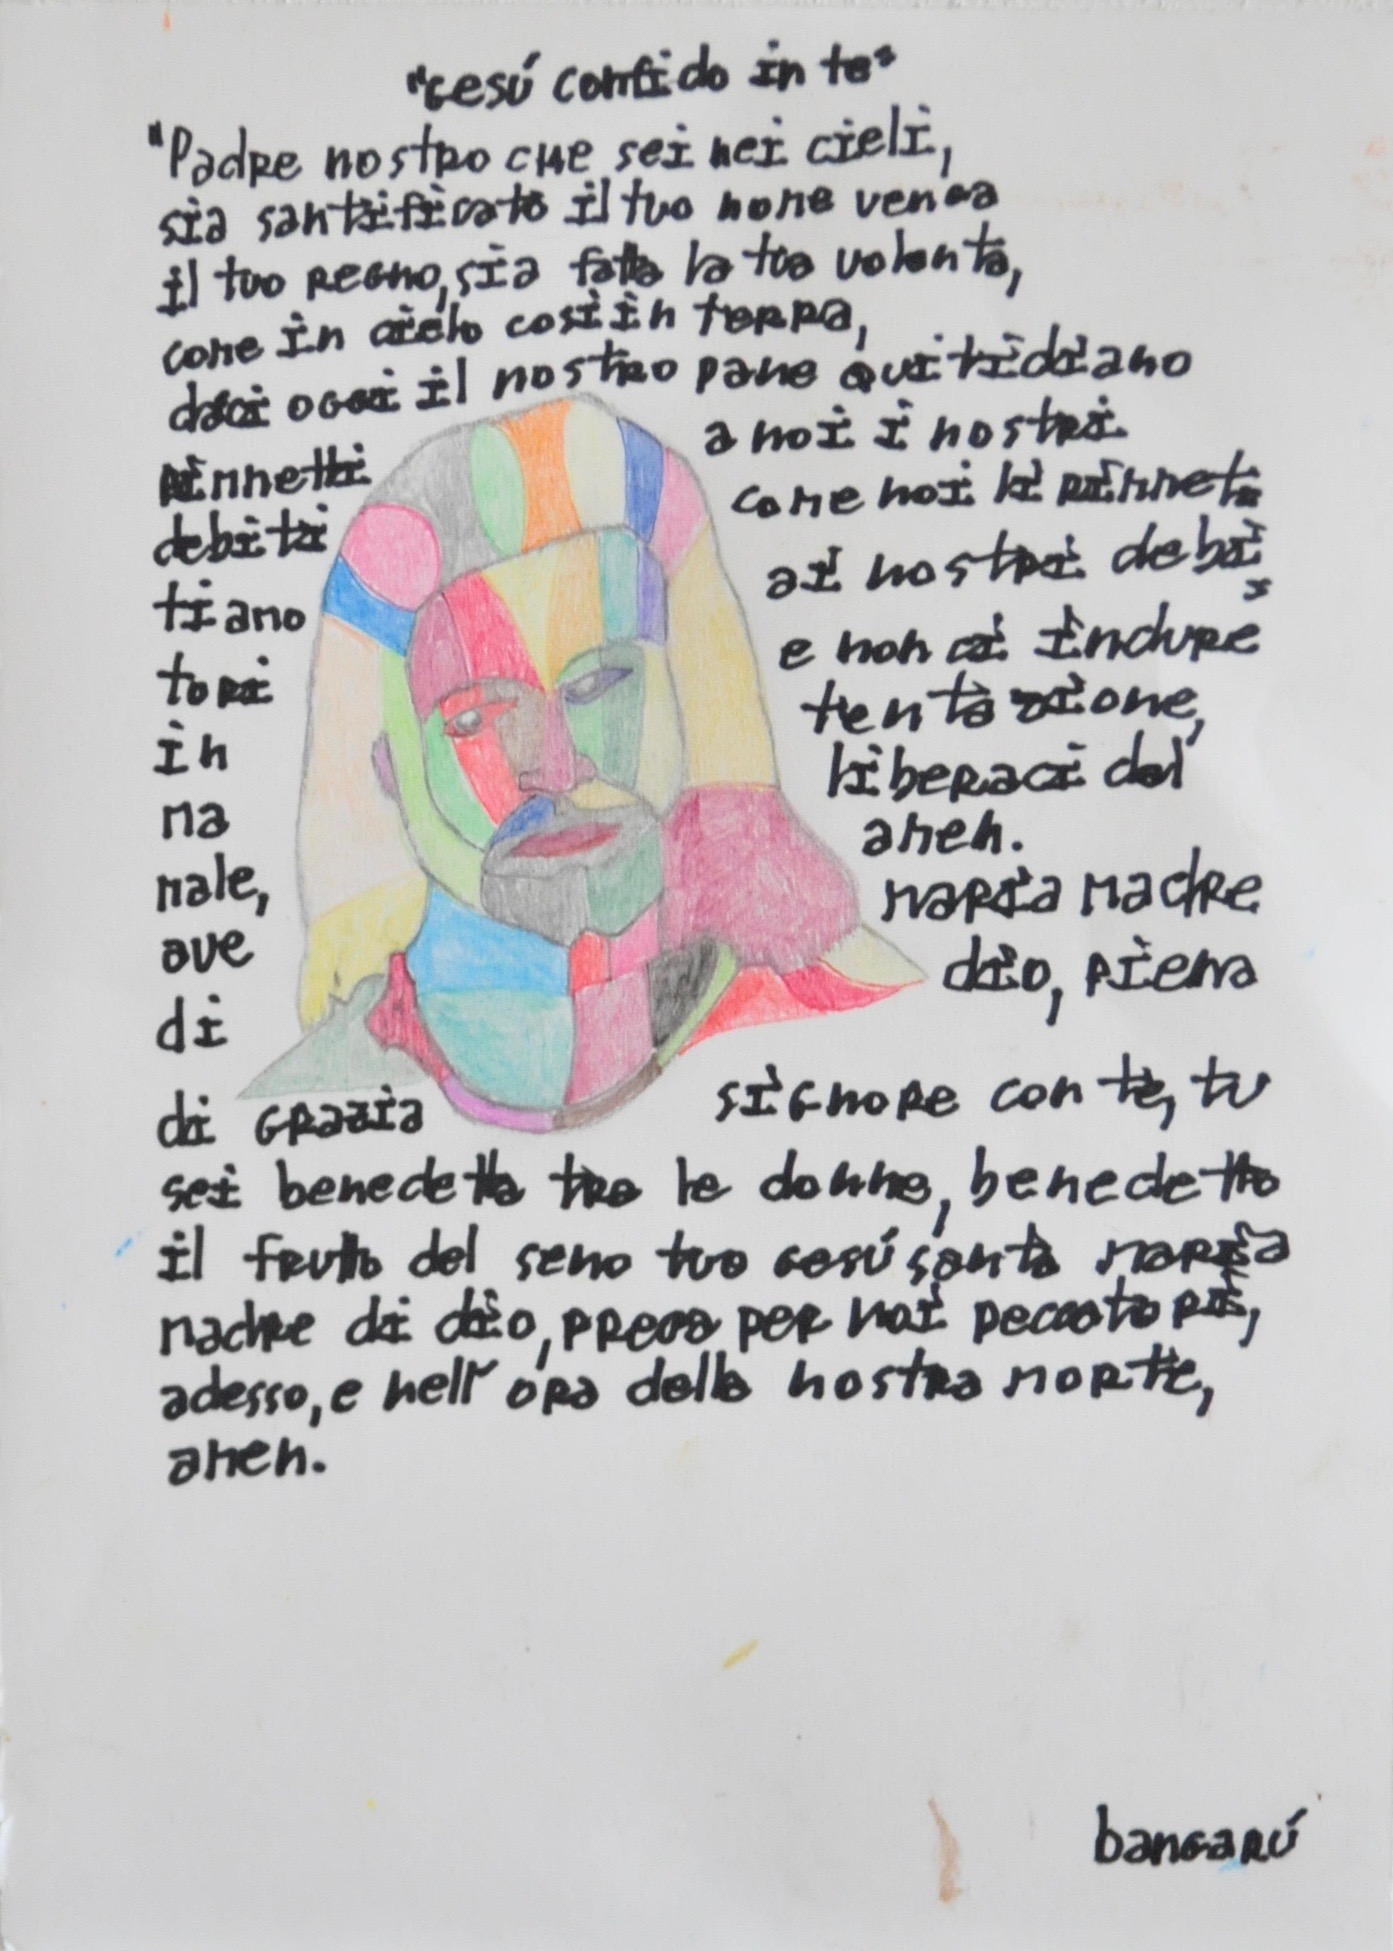 "Gesú confido in te"
"Padre nostro che sei nei cieli,
sia santificato il tuo nome venga
il tuo regno, sia fatta la tua volonta,
come in cielo cosi in terra,
daci oggi il nostro pane quitidiano
rimmetti a noi i nostri
debiti come noi li rimmeti
tiamo ai nostri debi
tori e non ci indure
in tentazione,
ma liberaci dal
male, amen.
ave maria madre
di dio, piena
di grazia signore con te, tu
sei benedetta tra le donne, benedetto
il frutto del seno tuo gesú santa maria
madre di dio, prega per noi peccatori,
adesso, e nell'ora della nostra morte,
amen.
bangarú